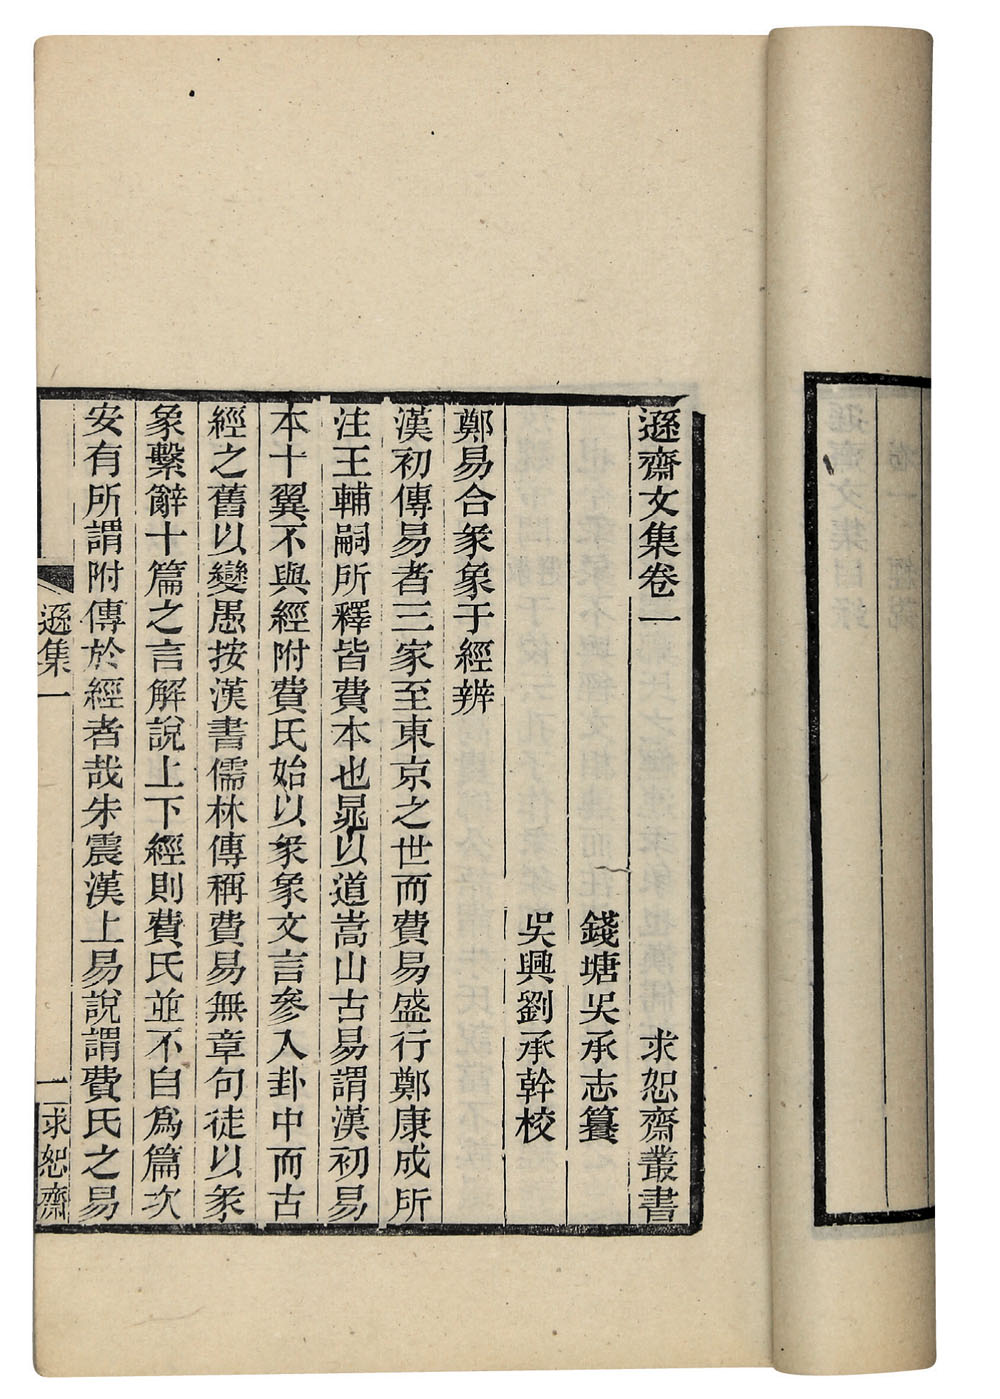 遜齋文集卷一　求恕齋叢書
錢塘吳承志纂
吳興劉承幹校
鄭易合彖象于經辨
漢初傳易者三家至東京之世而費易盛行鄭康成所
注王輔嗣所釋皆費本也晁以道嵩山古易謂漢初易
本十翼不與經附費氏始以彖象文言參入卦中而古
經之舊以變愚按漢書儒林傳稱費易無章句徒以彖
象繫辭十篇之言解說上下經則費氏並不自爲篇次
安有所謂附傳於經者哉朱震漢上易說謂費氏之易
遜集一　一　求恕齋